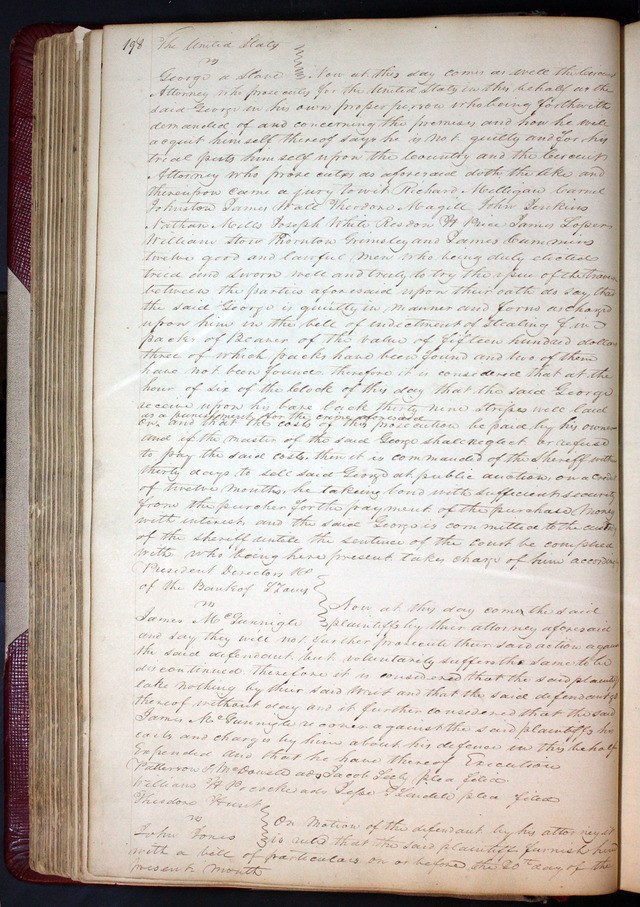 198 The United States
vs
George a Slave } Now at this day comes as well the Circuit
Attorney who prosecutes for the United States in this behalf as the
said George in his own proper person who being forthwith
demanded of and concerning the premises and how he will
acquit himself thereof says he is not guilty and for his
trial puts himself upon the Country and the Circuit
Attorney who prosecutes as aforesaid doth the like and
thereupon came a jury to wit Richard Milligan
Johnston James Wall Theodore Magill John Jenkins
Nathan Mills Joseph White Resdon H Price James Loper
William Stow Thornton Grimsley and James Cummins
twelve good and lawful men who being duly elected
tried and sworn well and truly to try the issue of the traverse
between the parties aforesaid upon their oath do say that
the said George is guilty in manner and form as charged
upon him in the bill of indictment of stealing five
packs of Beaver of the value of fifteen hundred dollars
three of which packs have been found and two of them
have not been found therefore it is considered that at the
hour of six of the Clock of this day that the said George
receive upon his bare back thirty nine stripes well laid
as a punishment for the crime aforesaid
on, and that the costs of this prosecution be paid by his owner
and if the master of the said George shall neglect or refuse
to pay the said costs then it is commanded of the Sheriff within
thirty days to sell said George at public auction, on a credit
of twelve months, he takeing bond with sufficient security
from the purcher for the payment of the purchase money
with interest, and the said George is committed to the custody
of the sheriff untile the sentence of the court be complied
with who being here present takes charge of him accordingly
President Directors &c
of the Bank of St Louis
vs
James McGunnigle } Now at this day come the said
plaintiffs by their attorney aforesaid
and say they will not further prosecute their said action against
the said defendant but voluntarily suffers the same to be
discontinued Therefore it is considered that the said plaintiffs
take nothing by their said Writ and that the said defendant go
thereof without day and it further considered that the said
James McGunnigle recover against the said plaintiffs his
costs and charges by him about his defence in this behalf
Expended and that he have thereof Execution
Patterson & McDonald ads Jacob plea filed
William H Pococke ads Jesse G Lindell plea filed
Theodore Hunt
vs
John Jones } On Motion of the defendant by his attorney it
is ruled that the said plaintiff furnish him
with a bill of particulars on or before the 20th day of the
present month